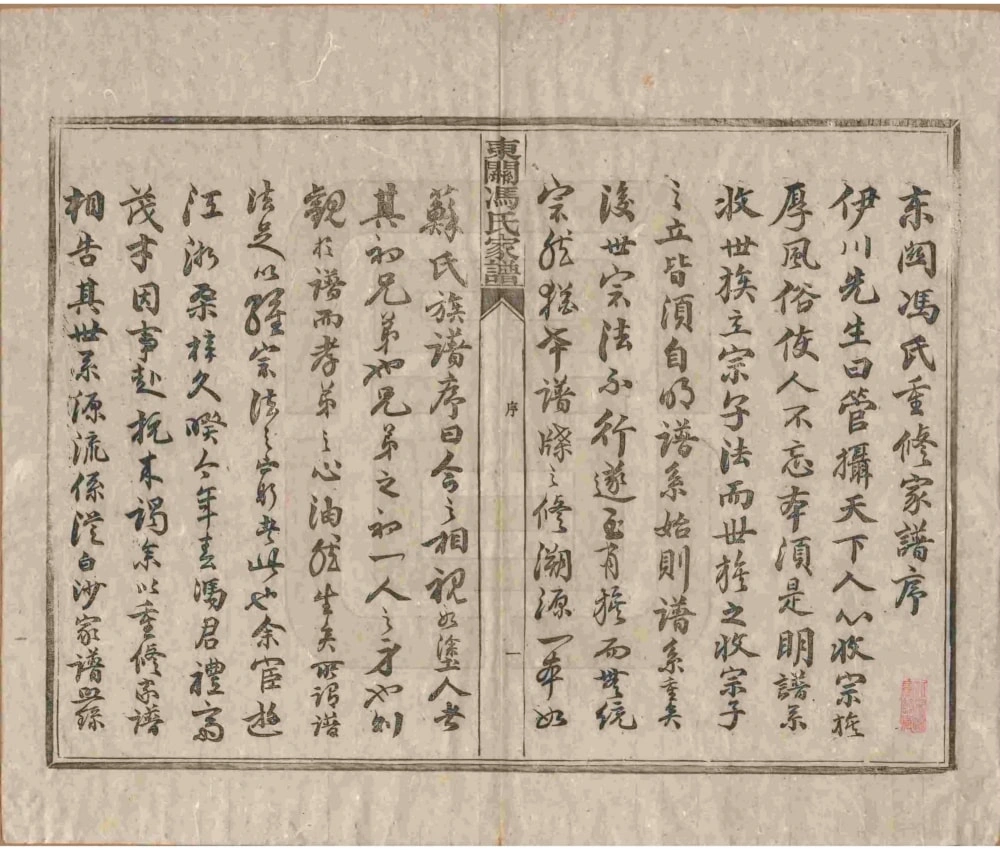 東關馮氏重修家譜序
伊川先生曰管攝天下人心收宗族
厚風俗使人不忘本須是明譜系
收世族立宗子法而世族之收宗子
之立皆須自明譜系始則譜系重矣
後世宗法不行遂至有族而無統
宗然猶幸譜牒之修溯源一本如
東關馮氏家譜
序
一
蘇氏族譜序曰今之相視如塗人者
其初兄弟也兄弟之初一人之身也則
觀於譜而孝弟之心油然生矣所謂譜
法足以維宗法之窮者此也余宦遊
江浙桑梓久暌今年春馮君禮齋
茂才因事赴杭來謁余以重修家譜
相告其世系源流係從白沙家譜照錄